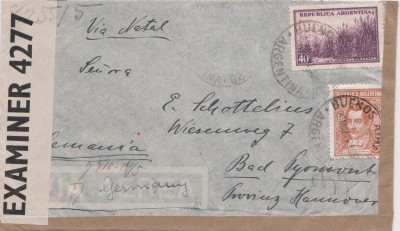 EXAMINER 4277
Via Natal
REPUBLICA ARGENTINA
40
Señora
E. Schottelius
Wiesenweg 7
REPUBLICA ARGENTINA
BUENOS AIRES
Alemania
Germany
Bad Pyrmont
Provinz Hannover